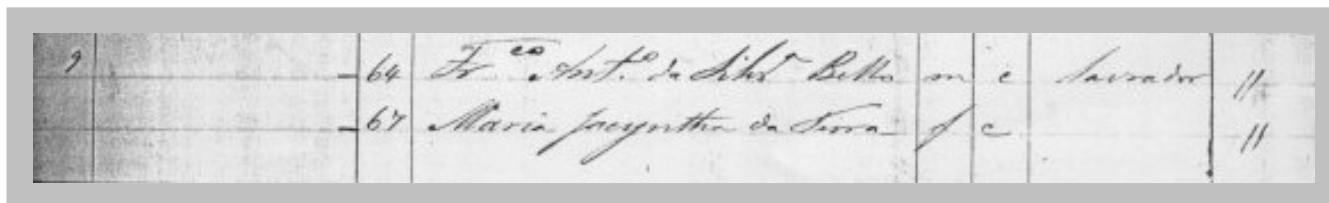 9 - 64 Fr.co Ant.o da Silv.a Bello m c lavrador 11
- 67 Maria Jacyntha da Serra f c 11